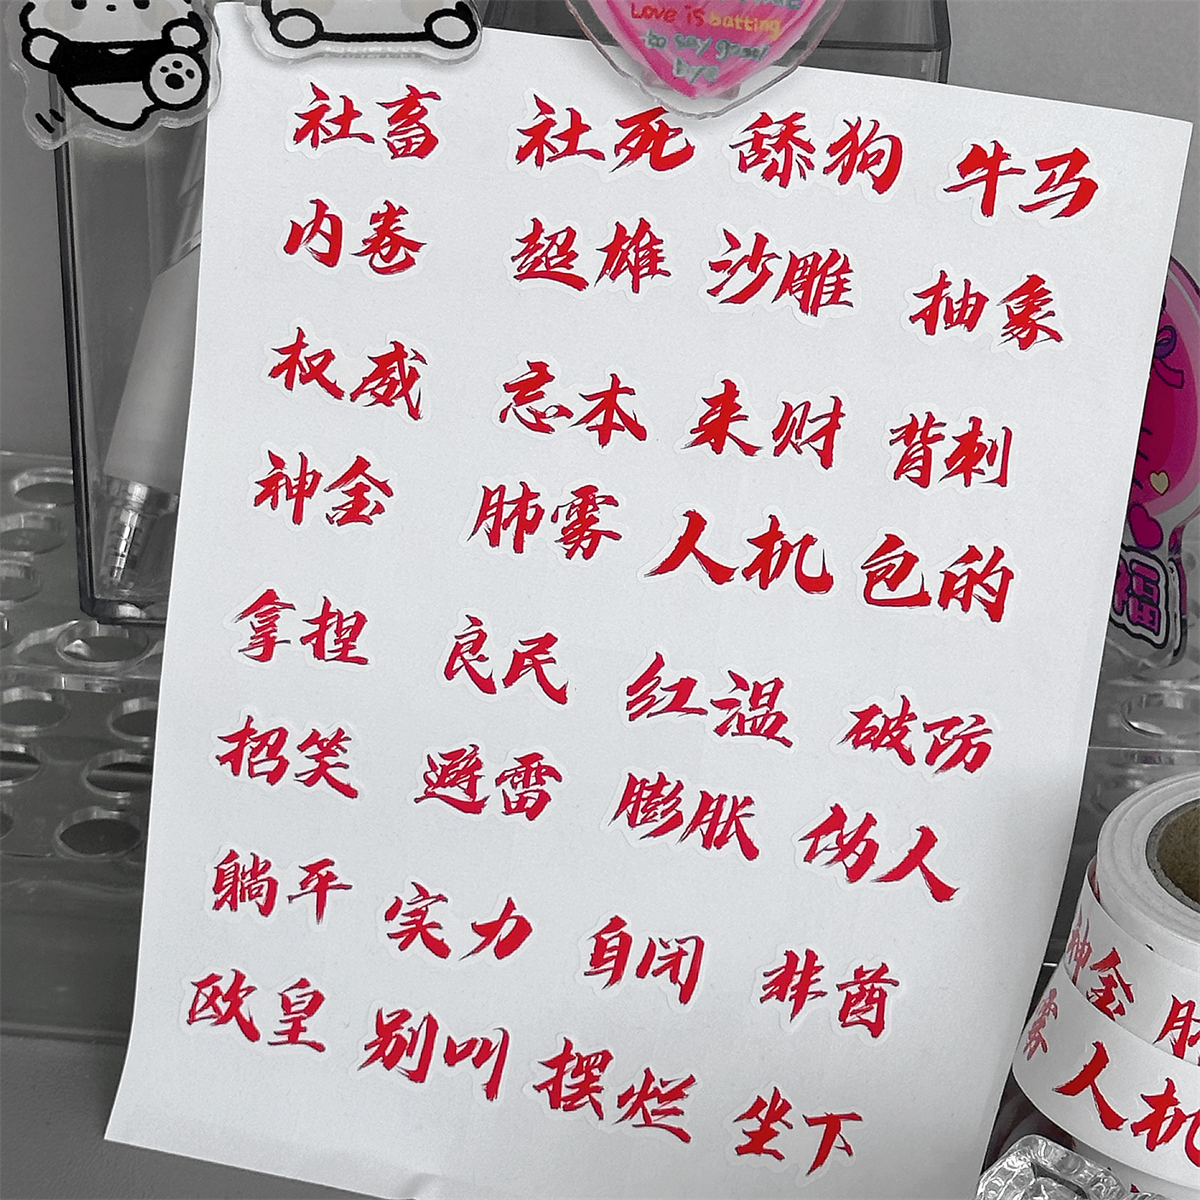 Love is batting
to say good
bye
社畜 社死 舔狗 牛马
内卷 超雄 沙雕 抽象
权威 忘本 来财 背刺
神金 肺雾 人机 包的
拿捏 良民 红温 破防
招笑 避雷 膨胀 伪人
躺平 实力 自闭 非酋
欧皇 别叫 摆烂 坐下
福
神金 肺
雾 人机